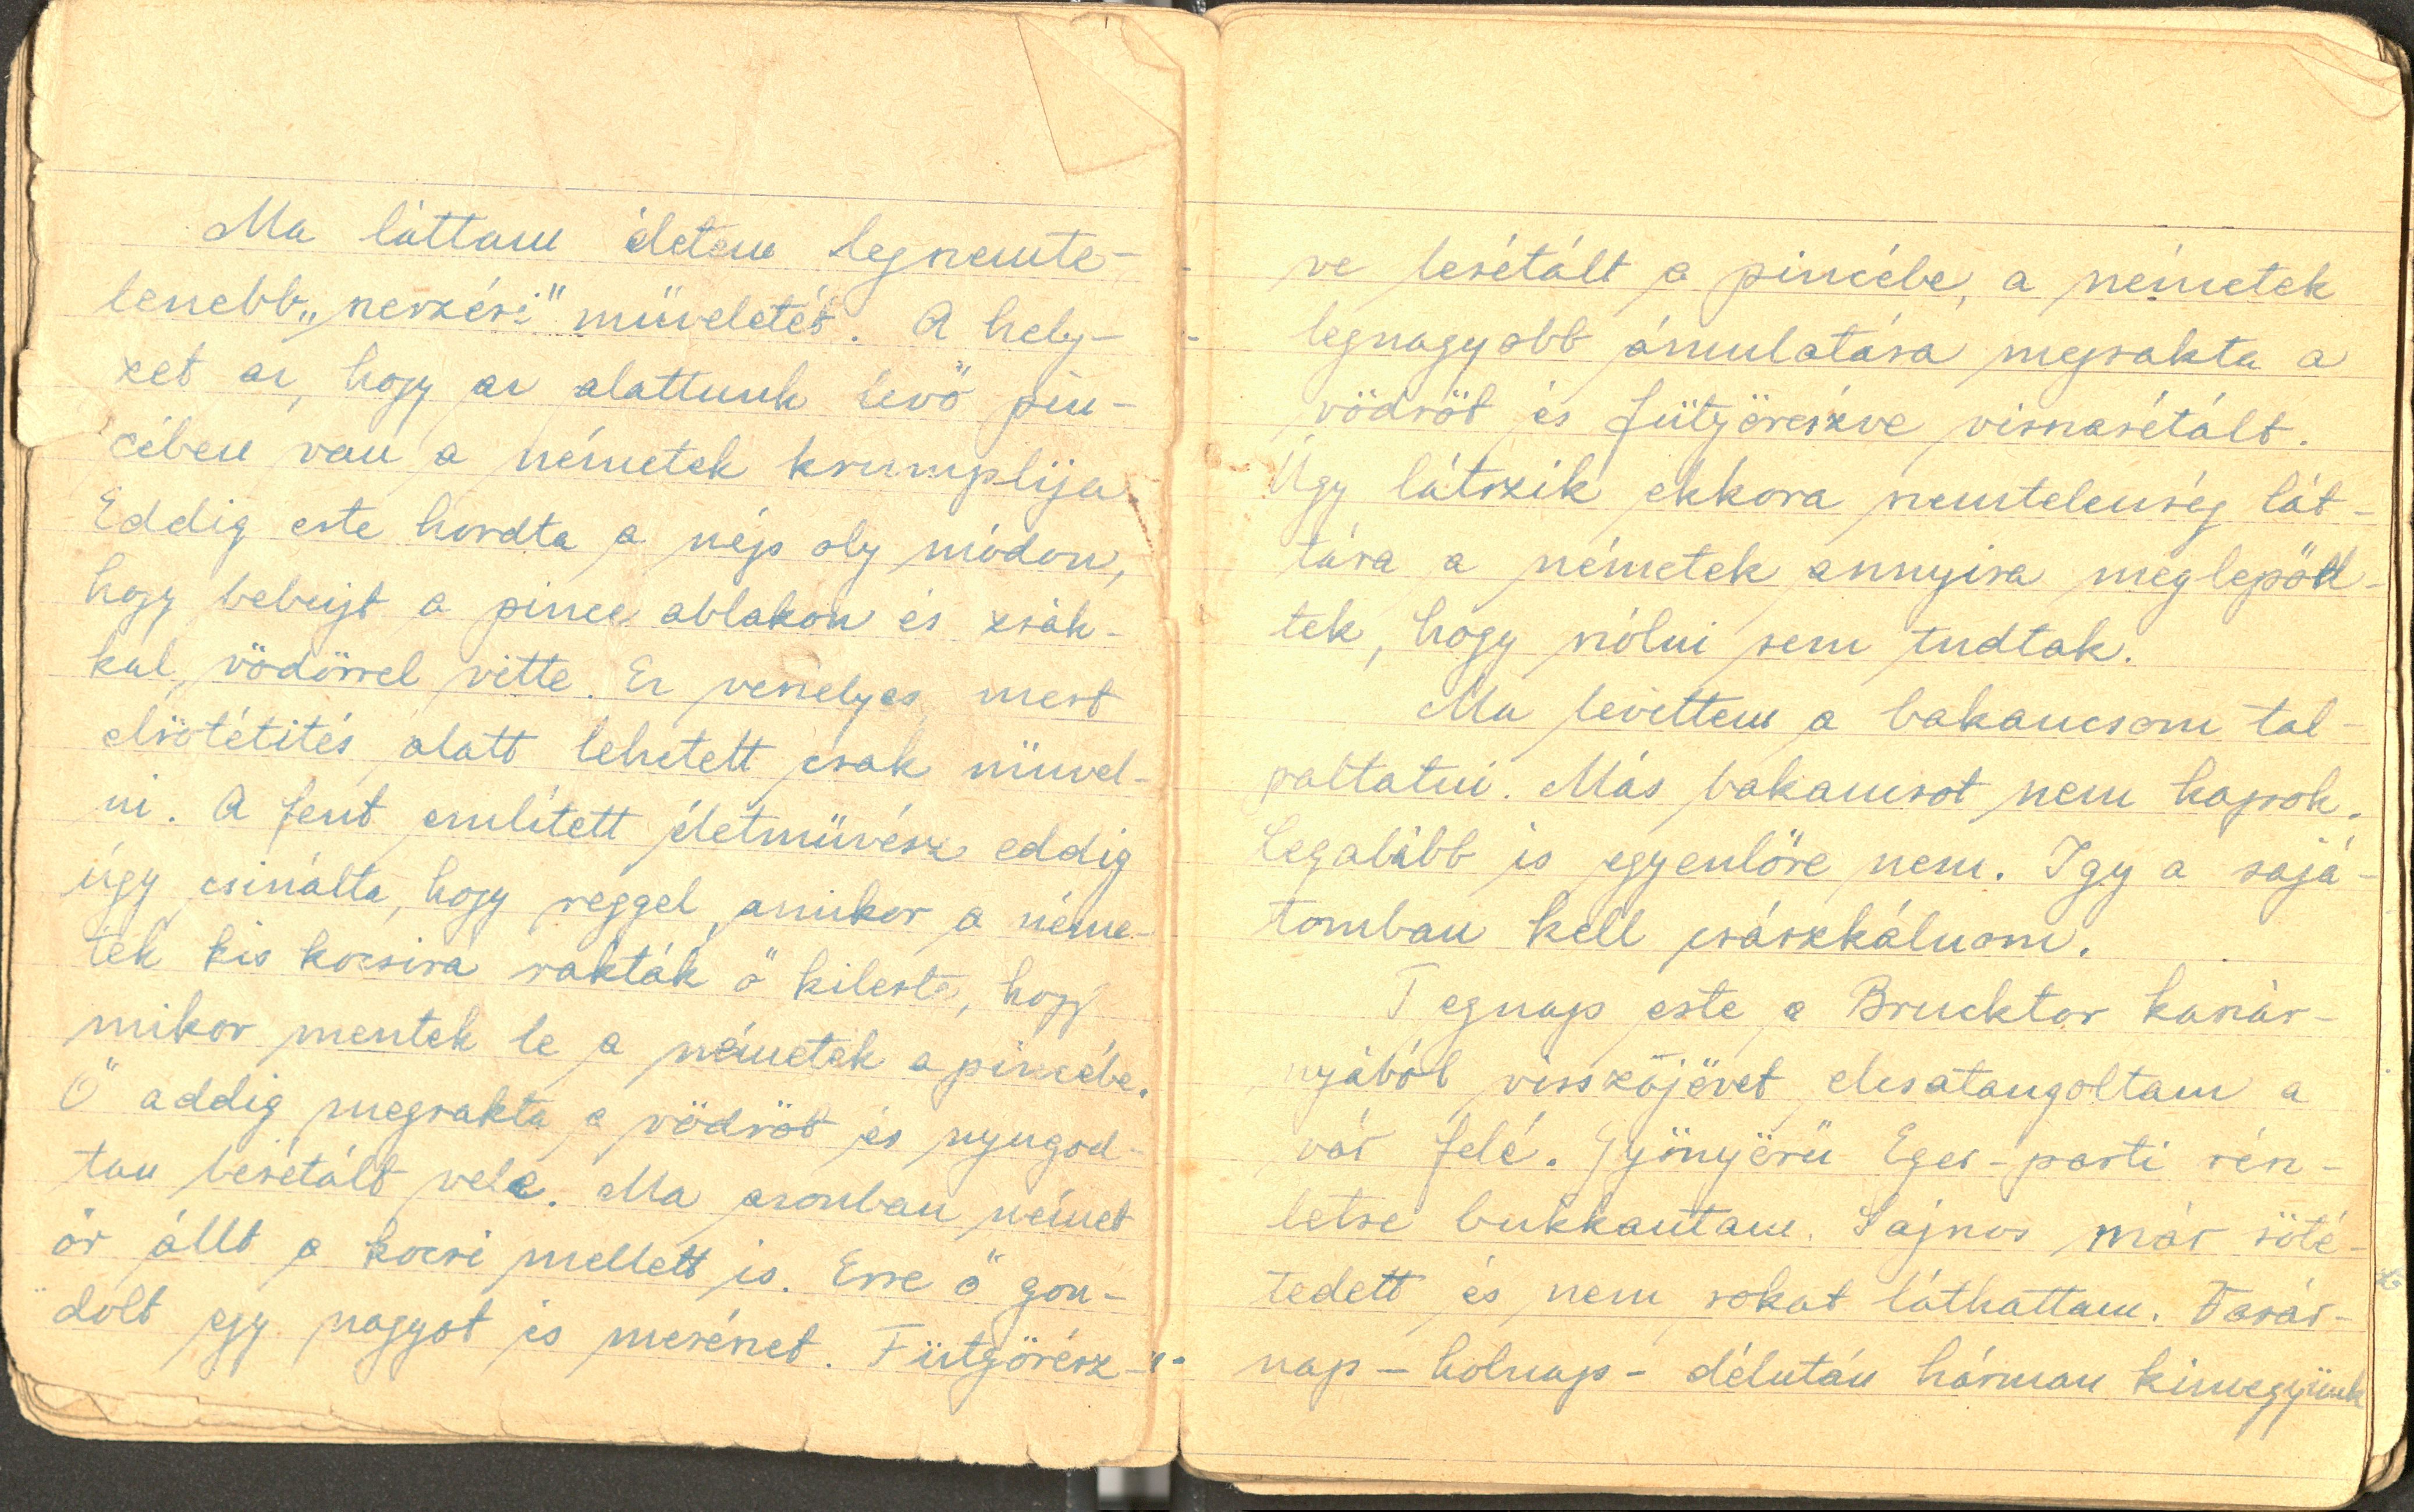 Ma láttam életem legnemte-
lenebb „szerzési" müveletét. A hely-
zet az, hogy az alattunk lévő pin-
cében van a németek krumplija
Eddig este hordta a nép oly módon,
hogy bebujt a pince ablakon és zsák-
kal, vödörrel vitte. Ez veszélyes, mert
elsötétités alatt lehetett csak müvel-
ni. A fent említett életmüvész eddig
úgy csinálta, hogy reggel, amikor a néme-
tek kis kocsira rakták ő kileste, hogy
mikor mentek le a németek a pincébe.
Ő addig megrakta a vödröt és nyugod-
tan besétált vele. Ma azonban német
őr állt a kocsi mellett is. Erre ő gon-
dolt egy nagyot és merészet. Fütyörész-
ve lesétált a pincébe, a németek
legnagyobb ámulatára megrakta a
vödröt és fütyörészve visszasétált.
Úgy látszik ekkora szemtelenség lát-
tára a németek annyira meglepőd-
tek, hogy szólni sem tudtak.
Ma levittem a bakancsom tal-
paltatni. Más bakancsot nem kapok.
Legalább is egyenlőre nem. Igy a sajá-
tomban kell császkálnom.
Tegnap este a Brucktor kaszár-
nyából visszajövet elcsatangoltam a
vár felé. Gyönyörü Eger-parti rész-
letre bukkantam. Sajnos már söté-
tedett és nem sokat láthattam. Vasár-
nap - holnap - délután hárman kimegyünk